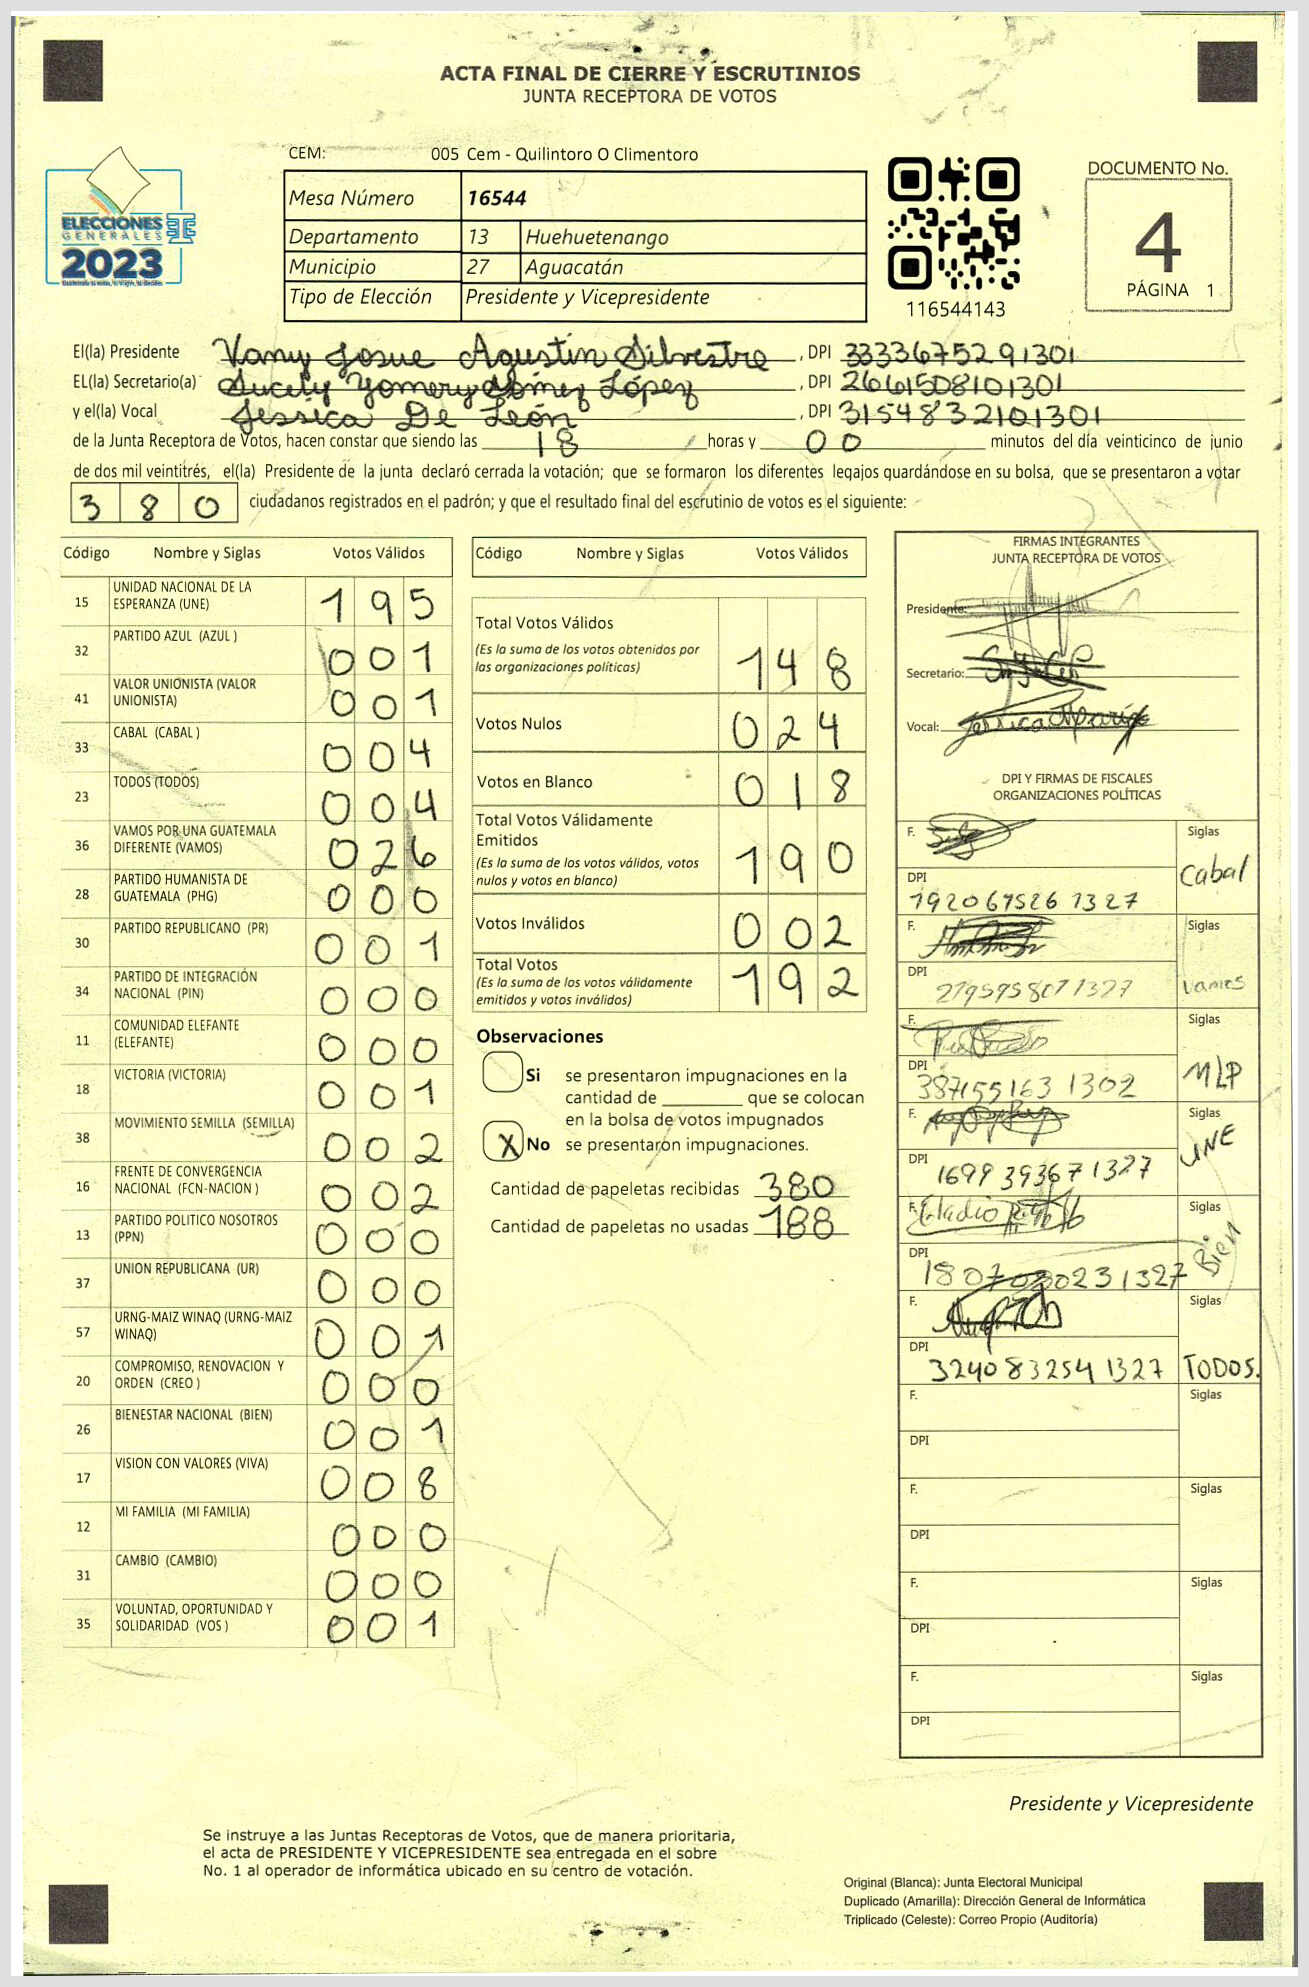 ACTA FINAL DE CIERRE Y ESCRUTINIOS
JUNTA RECEPTORA DE VOTOS
ELECCIONES
GENERALES
2023
CEM: 005 Cem - Quilintoro O Climentoro
Mesa Número 16544
Departamento 13 Huehuetenango
Municipio 27 Aguacatán
Tipo de Elección Presidente y Vicepresidente
116544143
DOCUMENTO No.
4
PÁGINA 1
El(la) Presidente Vany Josue Agustín Silvestre, DPI 3333675291301
EL(la) Secretario(a) Sucely Yomery Gómez López, DPI 2661508101301
y el(la) Vocal Jessica De León, DPI 3154832101301
de la Junta Receptora de Votos, hacen constar que siendo las 18 horas y 00 minutos del día veinticinco de junio
de dos mil veintitrés, el(la) Presidente de la junta declaró cerrada la votación; que se formaron los diferentes legajos guardándose en su bolsa, que se presentaron a votar
380 ciudadanos registrados en el padrón; y que el resultado final del escrutinio de votos es el siguiente:
Código Nombre y Siglas Votos Válidos
15 UNIDAD NACIONAL DE LA ESPERANZA (UNE) 195
32 PARTIDO AZUL (AZUL ) 001
41 VALOR UNIONISTA (VALOR UNIONISTA) 001
33 CABAL (CABAL ) 004
23 TODOS (TODOS) 004
36 VAMOS POR UNA GUATEMALA DIFERENTE (VAMOS) 026
28 PARTIDO HUMANISTA DE GUATEMALA (PHG) 000
30 PARTIDO REPUBLICANO (PR) 001
34 PARTIDO DE INTEGRACIÓN NACIONAL (PIN) 000
11 COMUNIDAD ELEFANTE (ELEFANTE) 000
18 VICTORIA (VICTORIA) 001
38 MOVIMIENTO SEMILLA (SEMILLA) 002
16 FRENTE DE CONVERGENCIA NACIONAL (FCN-NACION ) 002
13 PARTIDO POLITICO NOSOTROS (PPN) 000
37 UNION REPUBLICANA (UR) 000
57 URNG-MAIZ WINAQ (URNG-MAIZ WINAQ) 001
20 COMPROMISO, RENOVACION Y ORDEN (CREO ) 000
26 BIENESTAR NACIONAL (BIEN) 001
17 VISION CON VALORES (VIVA) 008
12 MI FAMILIA (MI FAMILIA) 000
31 CAMBIO (CAMBIO) 000
35 VOLUNTAD, OPORTUNIDAD Y SOLIDARIDAD (VOS ) 001
Código Nombre y Siglas Votos Válidos
Total Votos Válidos 148
(Es la suma de los votos obtenidos por
las organizaciones políticas)
Votos Nulos 024
Votos en Blanco 018
Total Votos Válidamente
Emitidos 190
(Es la suma de los votos válidos, votos
nulos y votos en blanco)
Votos Inválidos 002
Total Votos 192
(Es la suma de los votos válidamente
emitidos y votos inválidos)
Observaciones
Si se presentaron impugnaciones en la
cantidad de ________ que se colocan
en la bolsa de votos impugnados
X No se presentaron impugnaciones.
Cantidad de papeletas recibidas 380
Cantidad de papeletas no usadas 188
FIRMAS INTEGRANTES
JUNTA RECEPTORA DE VOTOS
Presidente:
Secretario:
Vocal:
DPI Y FIRMAS DE FISCALES
ORGANIZACIONES POLÍTICAS
F. Siglas
Cabal
DPI
1920679261327
F. Siglas
Vamos
DPI
2795958071327
F. Siglas
MLP
DPI
3871551631302
F. Siglas
UNE
DPI
1699393671327
F. Siglas
Bien
DPI
F. Siglas
DPI
3240832541327 TODOS.
F. Siglas
DPI
F. Siglas
DPI
F. Siglas
DPI
F. Siglas
DPI
Presidente y Vicepresidente
Se instruye a las Juntas Receptoras de Votos, que de manera prioritaria,
el acta de PRESIDENTE Y VICEPRESIDENTE sea entregada en el sobre
No. 1 al operador de informática ubicado en su centro de votación.
Original (Blanca): Junta Electoral Municipal
Duplicado (Amarilla): Dirección General de Informática
Triplicado (Celeste): Correo Propio (Auditoría)